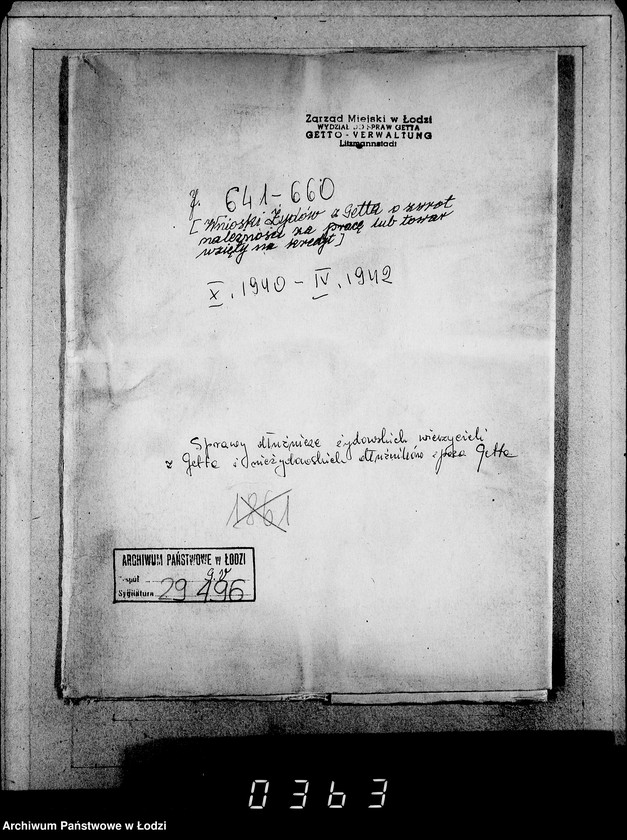 Zarząd Miejski w Łodzi
WYDZIAŁ DO SPRAW GETTA
GETTO-VERWALTUNG
Litzmannstadt
J. 641-660
[Wnioski Żydów z Getta o zwrot
należności za pracę lub towar
wzięty na kredyt]
X. 1940 - IV. 1942
Sprawy dłużnicze żydowskich wierzycieli
z Getta i nieżydowskich dłużników spoza Getta
1861
ARCHIWUM PAŃSTWOWE w ŁODZI
Zespół g.V
Sygnatura 29496
0363
Archiwum Państwowe w Łodzi